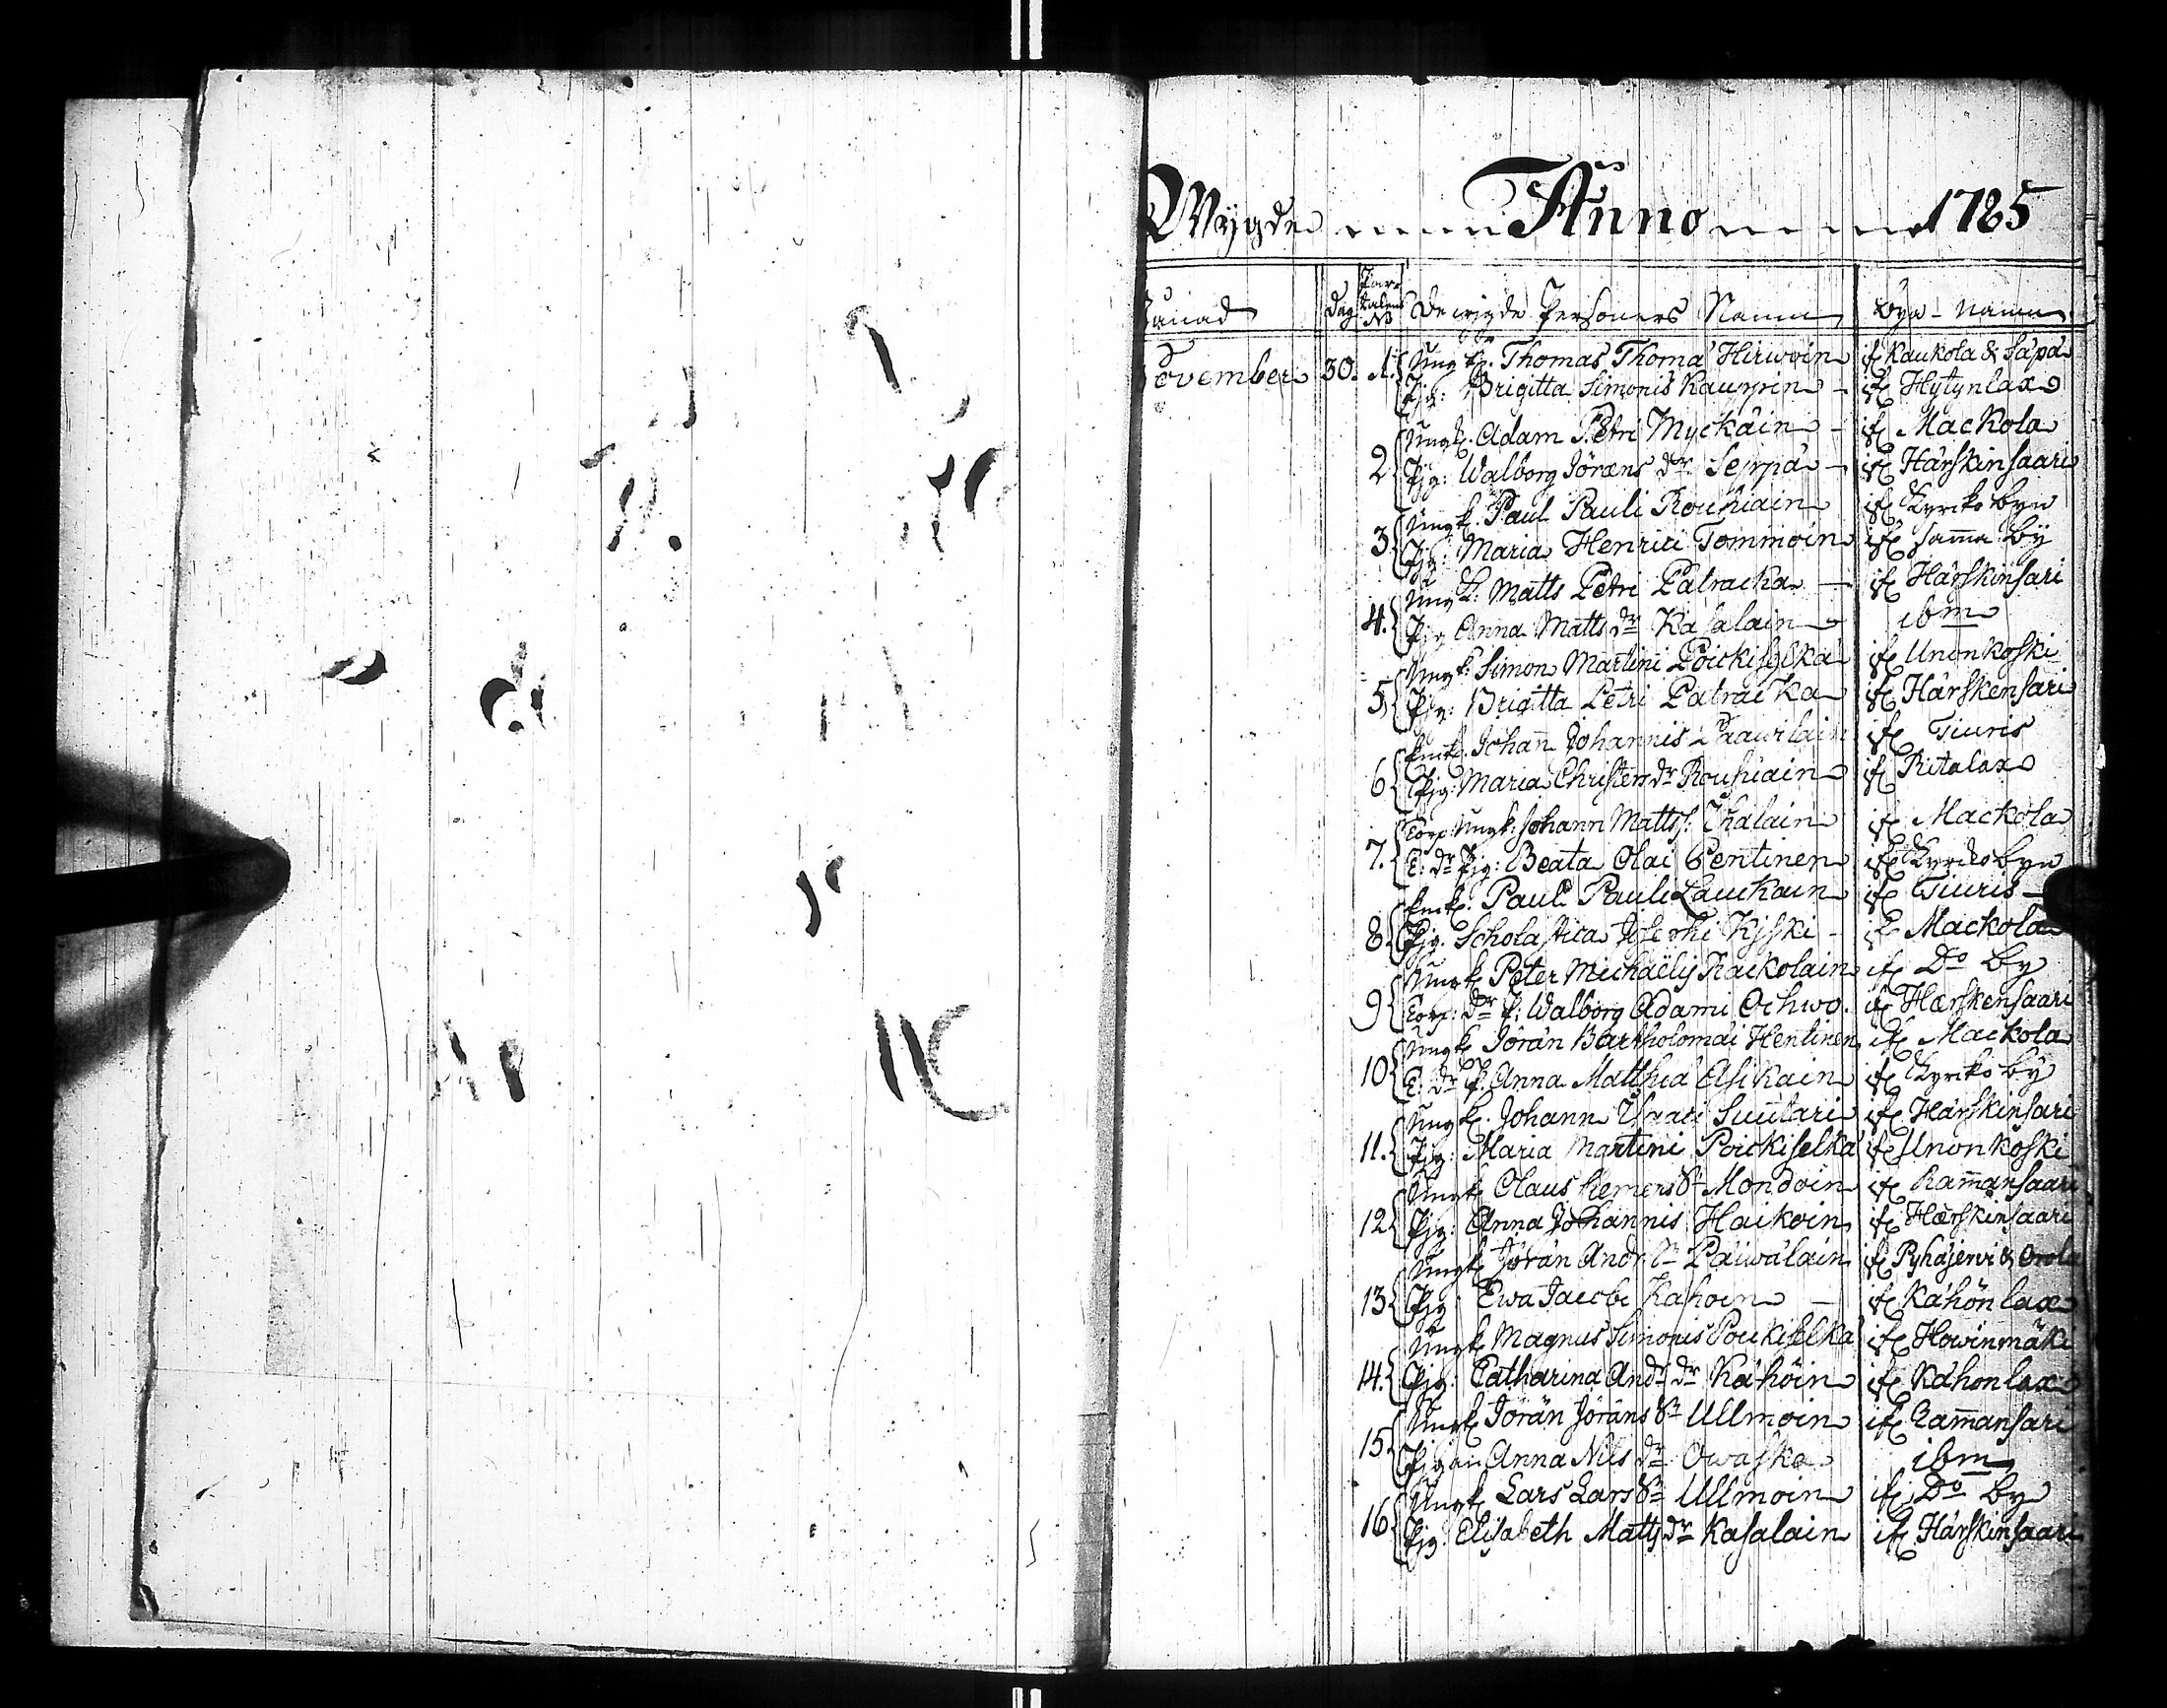 Wÿgde Anno 1785
Månad Dag Par-talens N° De wigde Personers Namn Bya-namn
November 30. 1. Ungk. Thomas Thomä Hirwoin if. Kaukola & Säpä
Pig: Brigitta Simonis Kauppin if. Hytynlax
2 Ungk. Adam Petri Myckäin if. Mackola
Pig: Walborg Jörans dr Seppä if. Härskinsaari
3 Ungk. Paul Pauli Rouhiain if. Kyrckobyn
Pig: Maria Henrici Tommoin if. samma bÿ
4. Ungk: Matts Petri Patracka if. Härskinsari
Pig Anna Matts dr Kasalain ibm
5 Ungk. Simon Martini Poickiselkä if. Unonkoski
Pig: Brigitta Petri Patracka if. Härskensari
6 Enk. Johan Johannis Paawilain if. Tiuris
Pig: Maria Christers dr Rouhiain if. Ritalax
7. Corp: Ungk: Johann Matts: Ihalain if. Mackola
E: dr Pig: Beata Olai Pentinen if. Kyrckobyn
8 Enk. Paul Pauli Laukain if. Tiuris
Pig. Scholastica Josephi Kiski if. Mackola
9 Ungk Peter Michaëlis Rackolain if. Do by
Corp: dr P: Walborg Adami Ochwo. if. Hærskensaari
10 Ungk Jöran Bartholomäi Hentinen if. Mackola
E: dr P. Anna Matthiä Asikain if. Kyrcko by
11. Ungk. Johann Isaaci Suutari if. Härskinsari
Pig: Maria Martini Poickiselkä if. Unonkoski
12 Ungk Olaus Remers S: Mondoin if. Rammansaari
Pig: Anna Johannis Haikoin if. Hærskinsaari
13 Ungk Jöran Andr: S: Päiwäläin if. Pyhäjerwi & Orola
Pig Ewa Jacobi Kähoin if. Kähönlax
14. Ungk Magnus Simonis Poickiselkä if. Howinmäki
Pig: Catharina And: dr Kähöin if. Kähonlax
15 Ungk Jörän Jöräns S: Ullmoin if. Rammansari
Pigan Anna Nils dr Owaska ibm
16 Ungk Lars Lars S: Ullmoin if. Do by
Pig. Elisabeth Matts dr Kasalain if. Härskinsaari